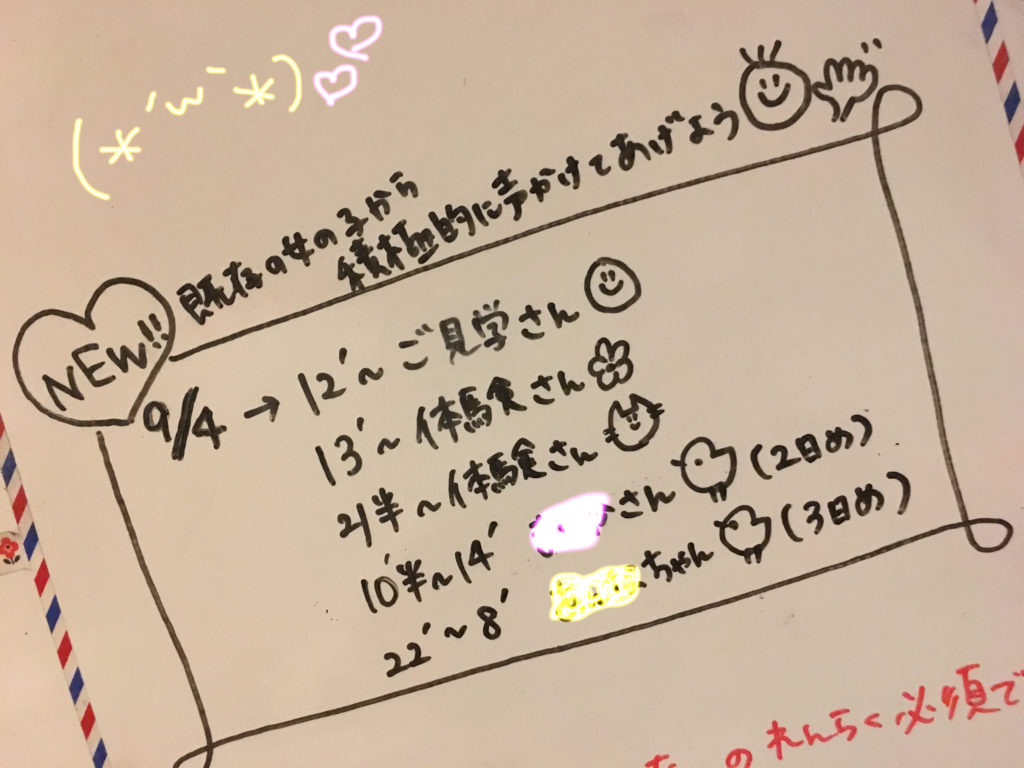 (*´ω`*)
既存の女の子から
積極的に声かけてあげよう
NEW!!
9/4 → 12'~ ご見学さん
13'~ 体験さん
21半~ 体験さん
10'半~14' さん (2日め)
22'~8' ちゃん (3日め)
のれんらく必須で